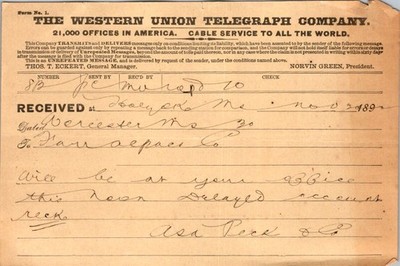 Form No. 1.
THE WESTERN UNION TELEGRAPH COMPANY.
21,000 OFFICES IN AMERICA. CABLE SERVICE TO ALL THE WORLD.
This Company TRANSMITS and DELIVERS messages only on conditions limiting its liability, which have been assented to by the sender of the following message.
Errors can be guarded against only by repeating a message back to the sending station for comparison, and the Company will not hold itself liable for errors or delays
in transmission or delivery of Unrepeated Messages, beyond the amount of tolls paid thereon, nor in any case where the claim is not presented in writing within sixty days
after the message is filed with the Company for transmission.
This is an UNREPEATED MESSAGE, and is delivered by request of the sender, under the conditions named above.
THOS. T. ECKERT, General Manager. NORVIN GREEN, President.
NUMBER SENT BY REC'D BY CHECK
83 10
RECEIVED at Holyoke Ms 189
Dated Worcester Ms 30
To Farr alpaca Co
Will be at your office
this noon Delayed account
reck
Asa Peck & Co